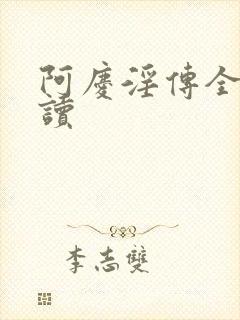 阿慶淫傳全
讀
李志雙